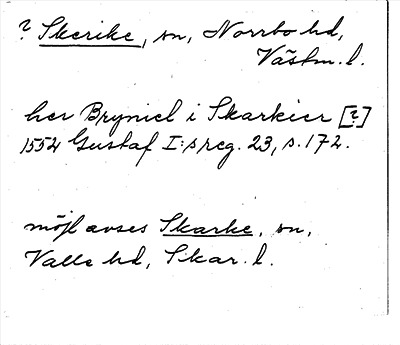 ? Skerike, sn, Norrbo hd,
Västm. l.
her Bryniel i Skarkier [?]
1554 Gustaf I:s reg. 23, s. 172.
möjl avses Skarke, sn,
Valle hd, Skar. l.